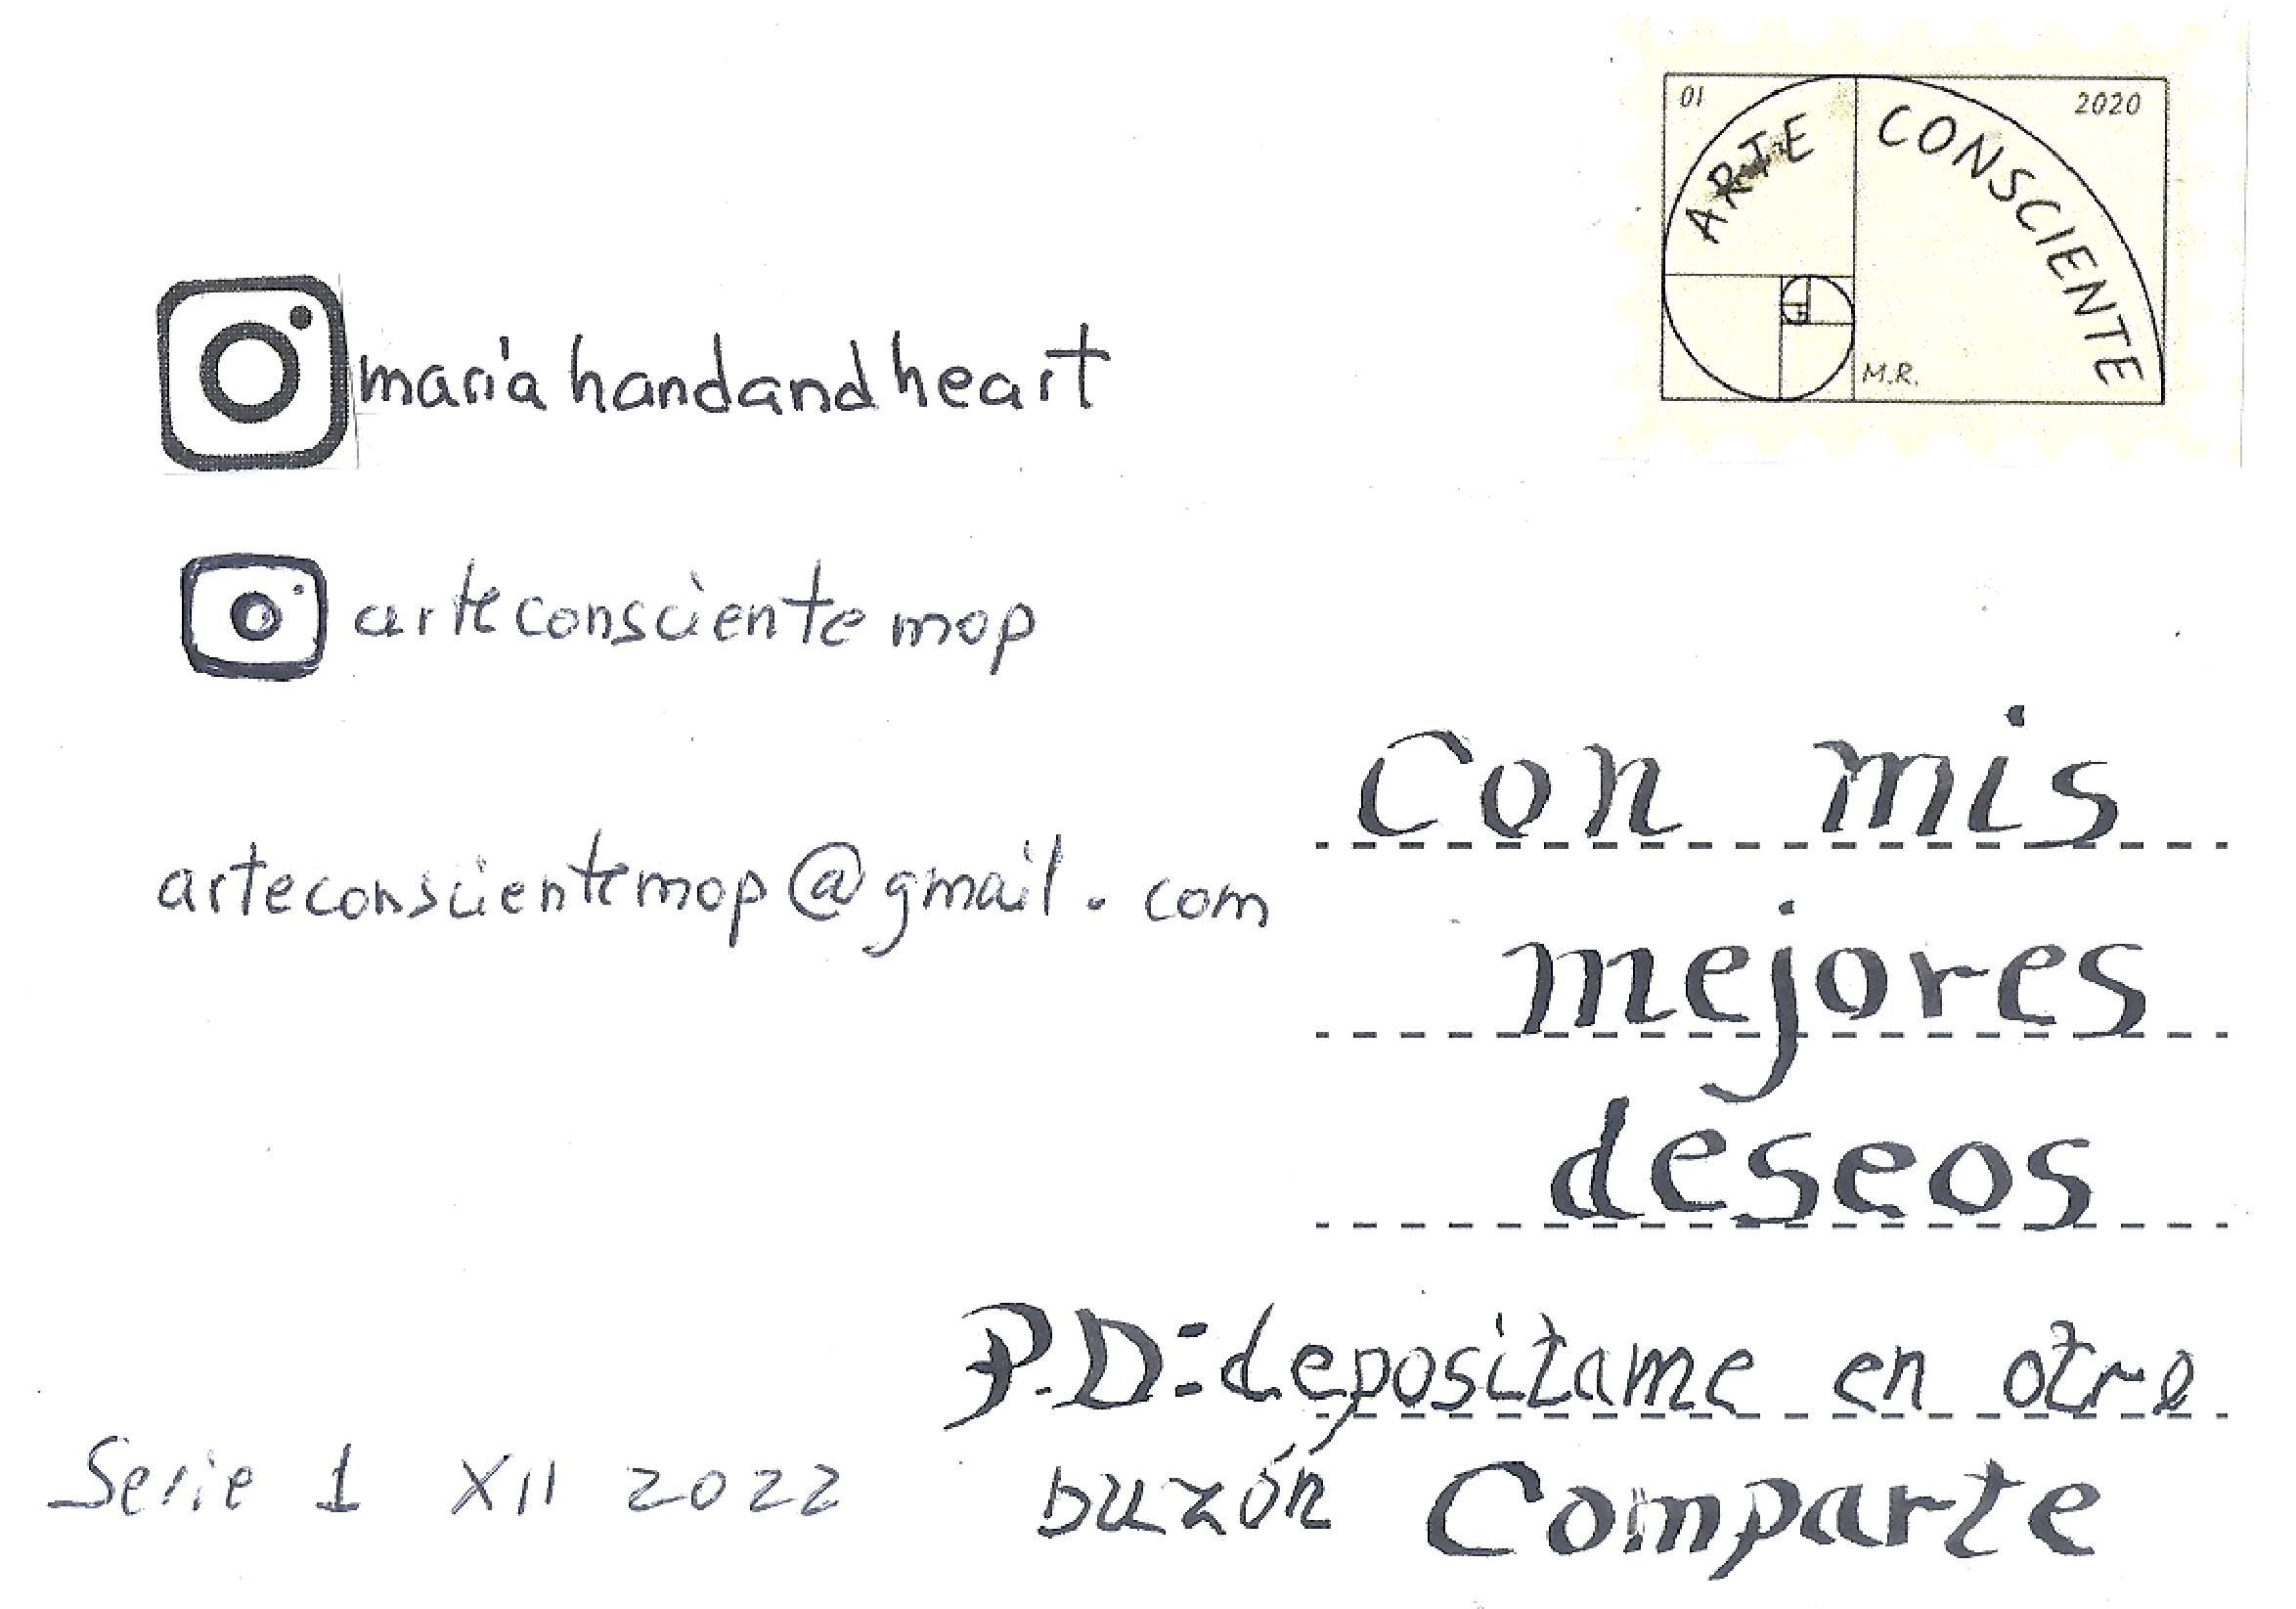 01 2020
ARTE CONSCIENTE
M.R.
maria handandheart
arteconsciente mop
arteconscientemop@gmail.com
Con mis
mejores
deseos
P.D:depositame en otro
buzón Comparte
Serie 1 XII 2022